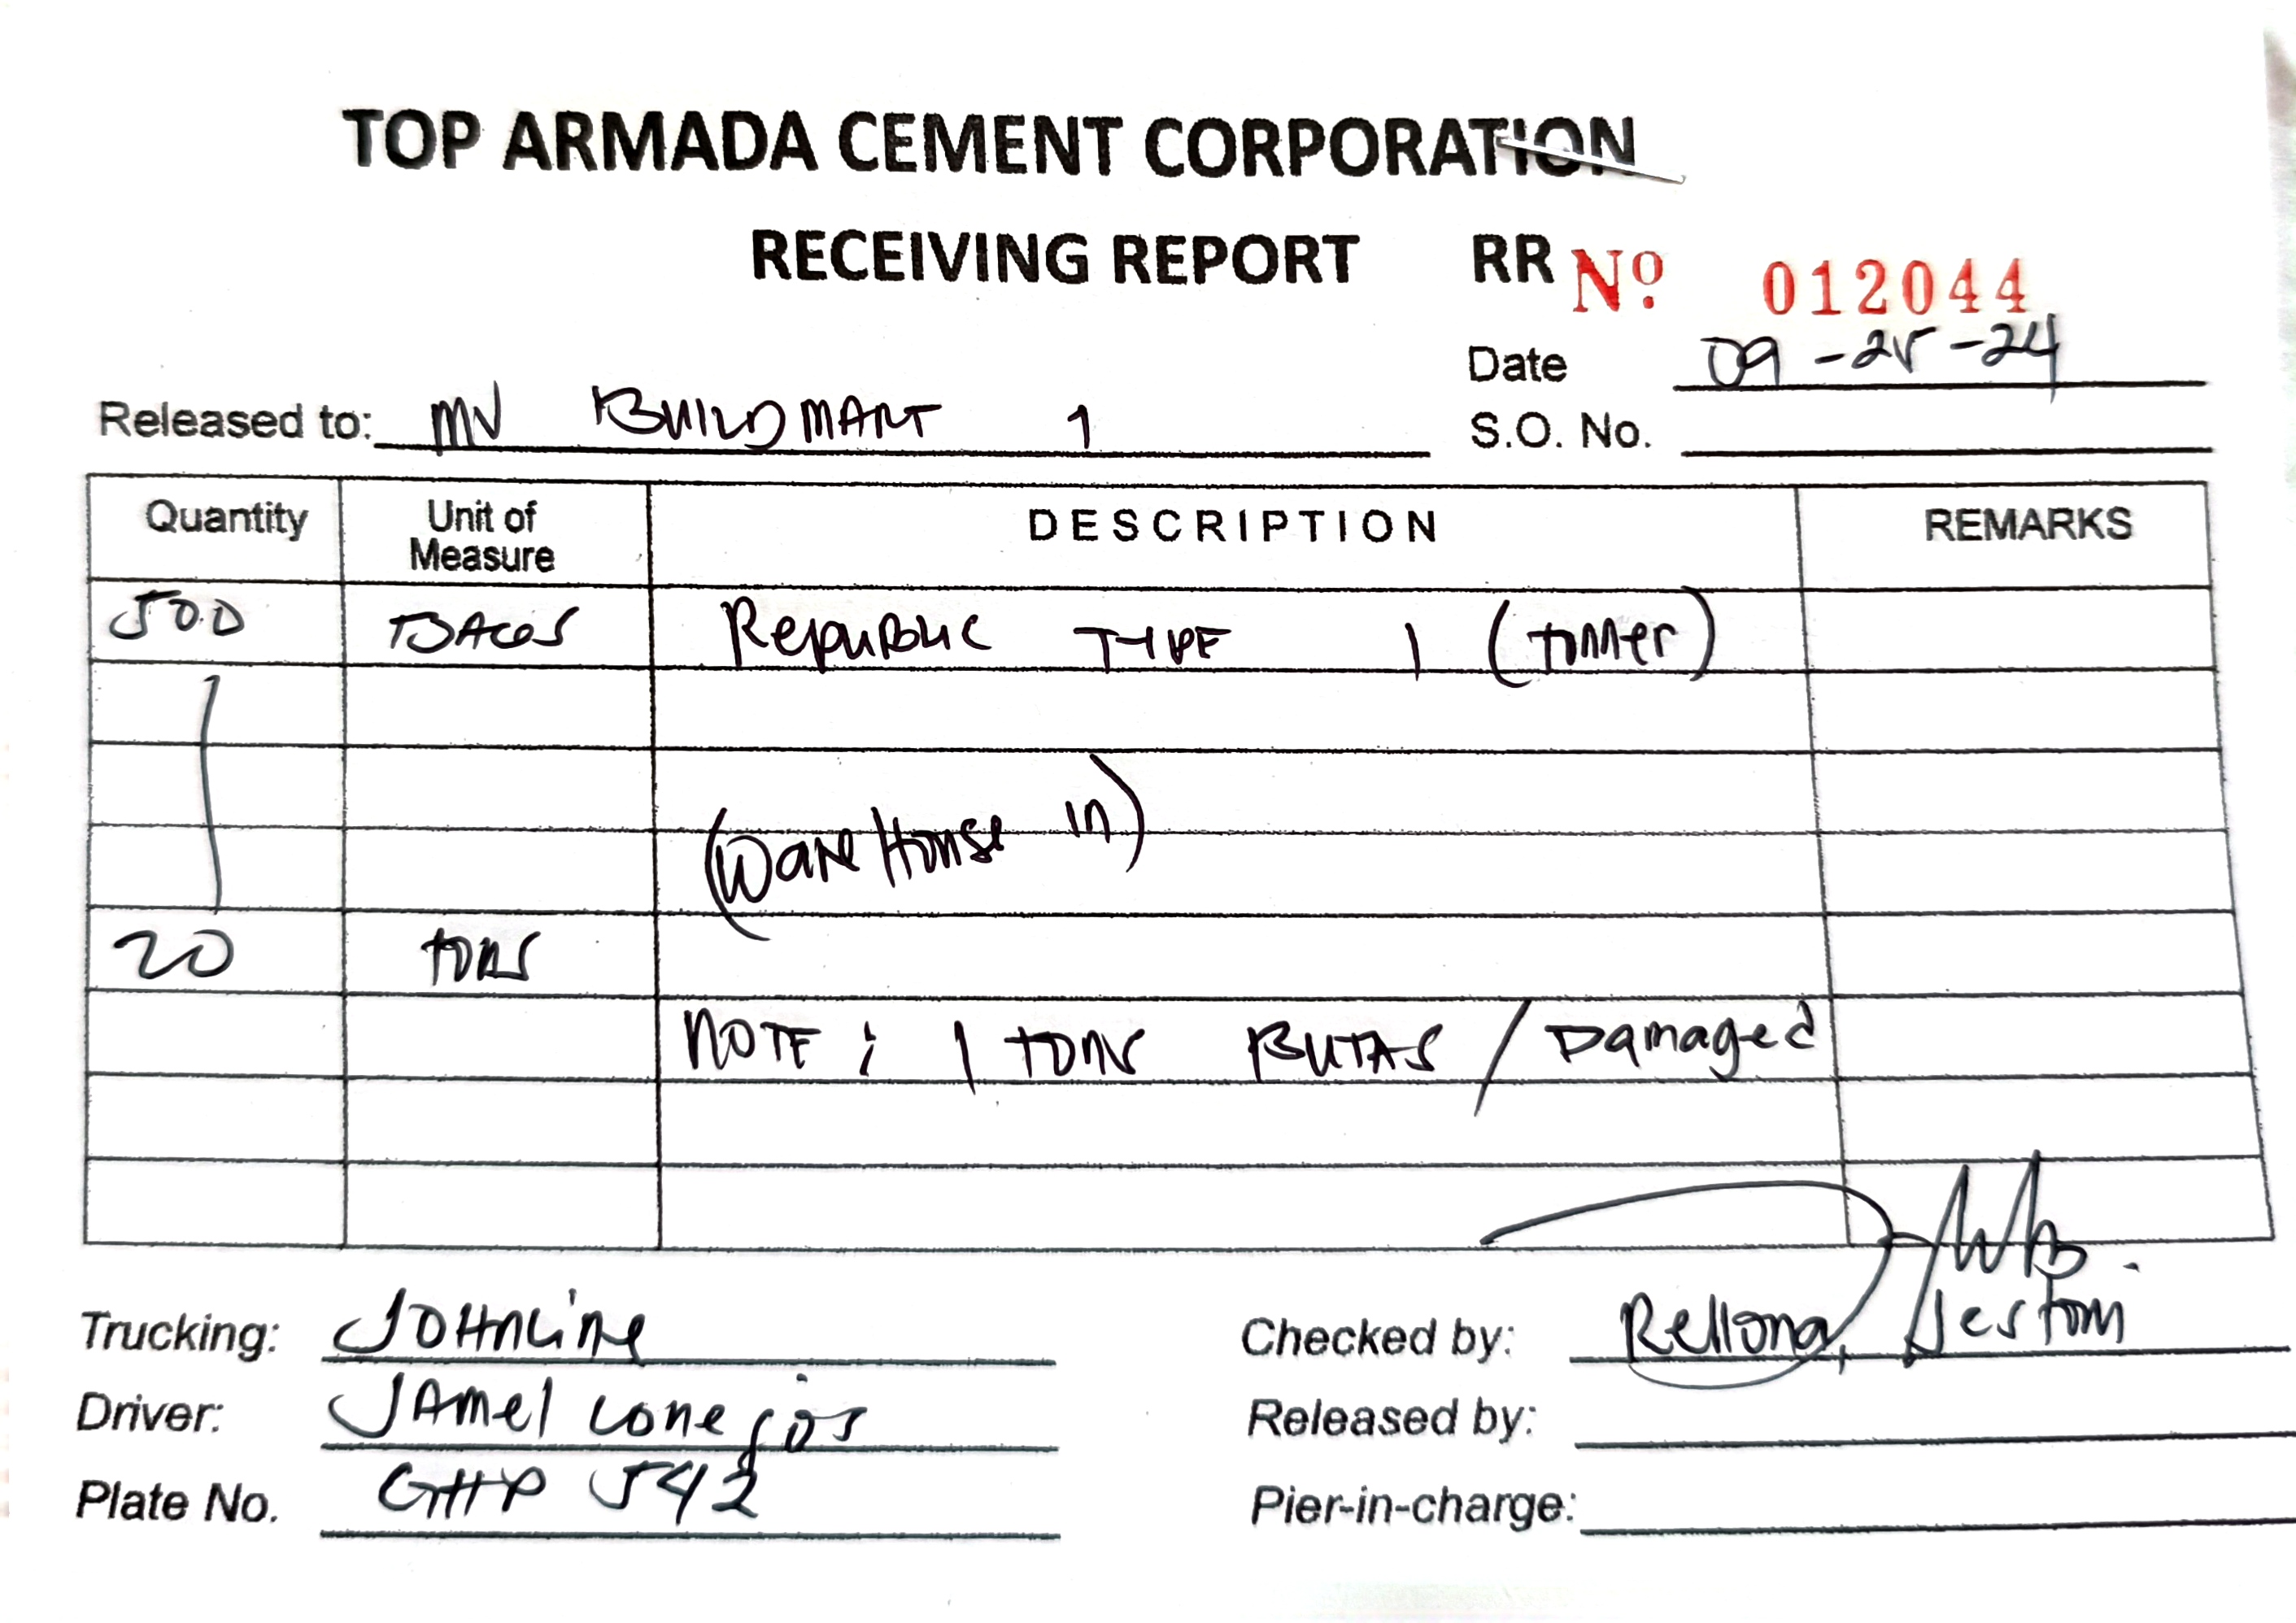 TOP ARMADA CEMENT CORPORATION
RECEIVING REPORT RR Nº 012044
Date 09-25-24
Released to: MV BUILDMART 1
S.O. No.
Quantity Unit of Measure DESCRIPTION REMARKS
500 BAGS Republic TYPE 1 (tonner)
(WareHouse in)
20 tons
NOTE : 1 tons BUTAS / Damaged
Trucking: JOHNLINE
Checked by: Rellona, Jestoni
Driver: JAmel
Released by:
Plate No. GHP 542
Pier-in-charge: